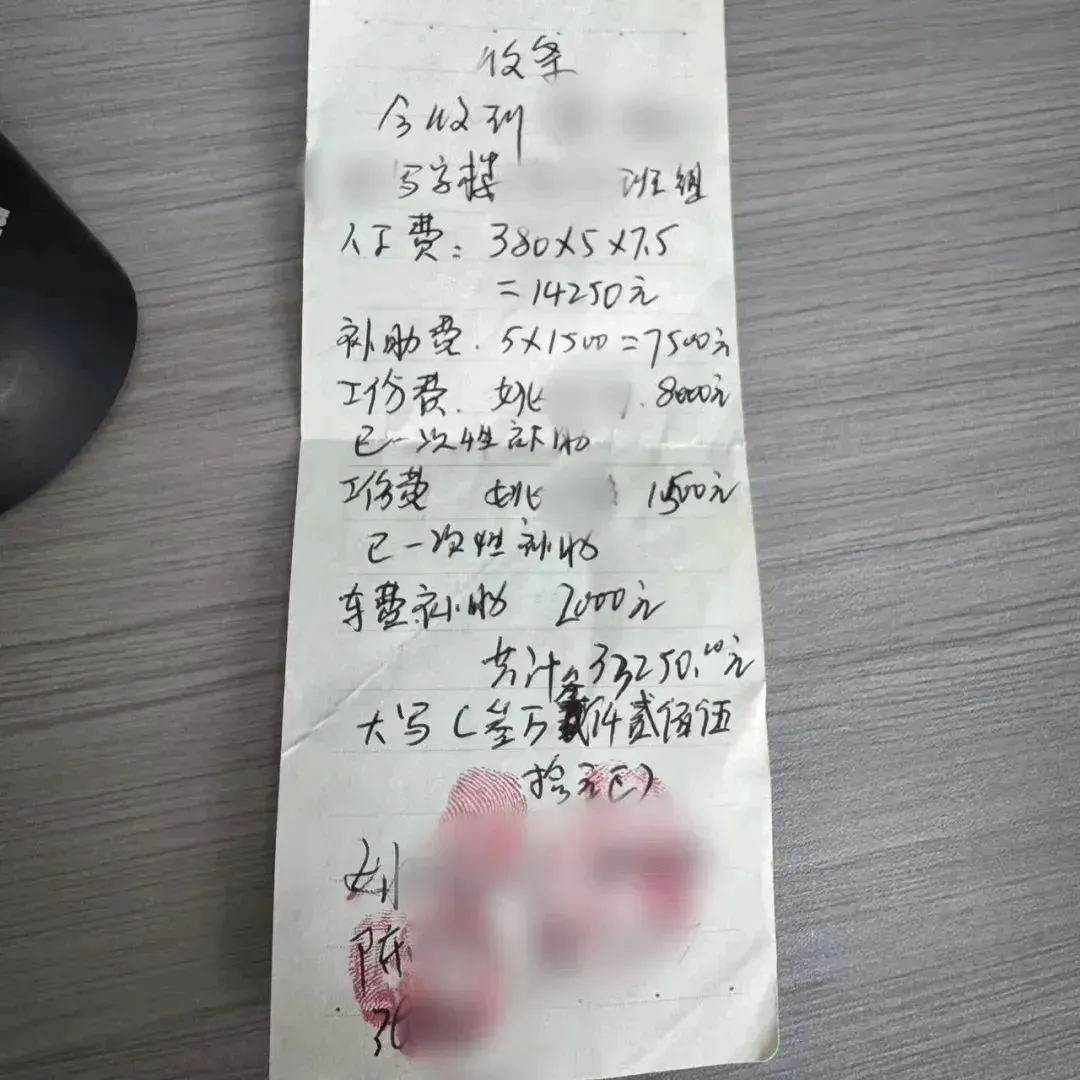 收条
今收到
写字楼 班组
人工费：380×5×7.5
=14250元
补助费.5×1500=7500元
工伤费.姚 .8000元
已一次性补助
工伤费 姚 1500元
已一次性补助
车费补助 2000元
共计 33250.00元
大写(叁万叁仟贰佰伍
拾元正)
刘
陈